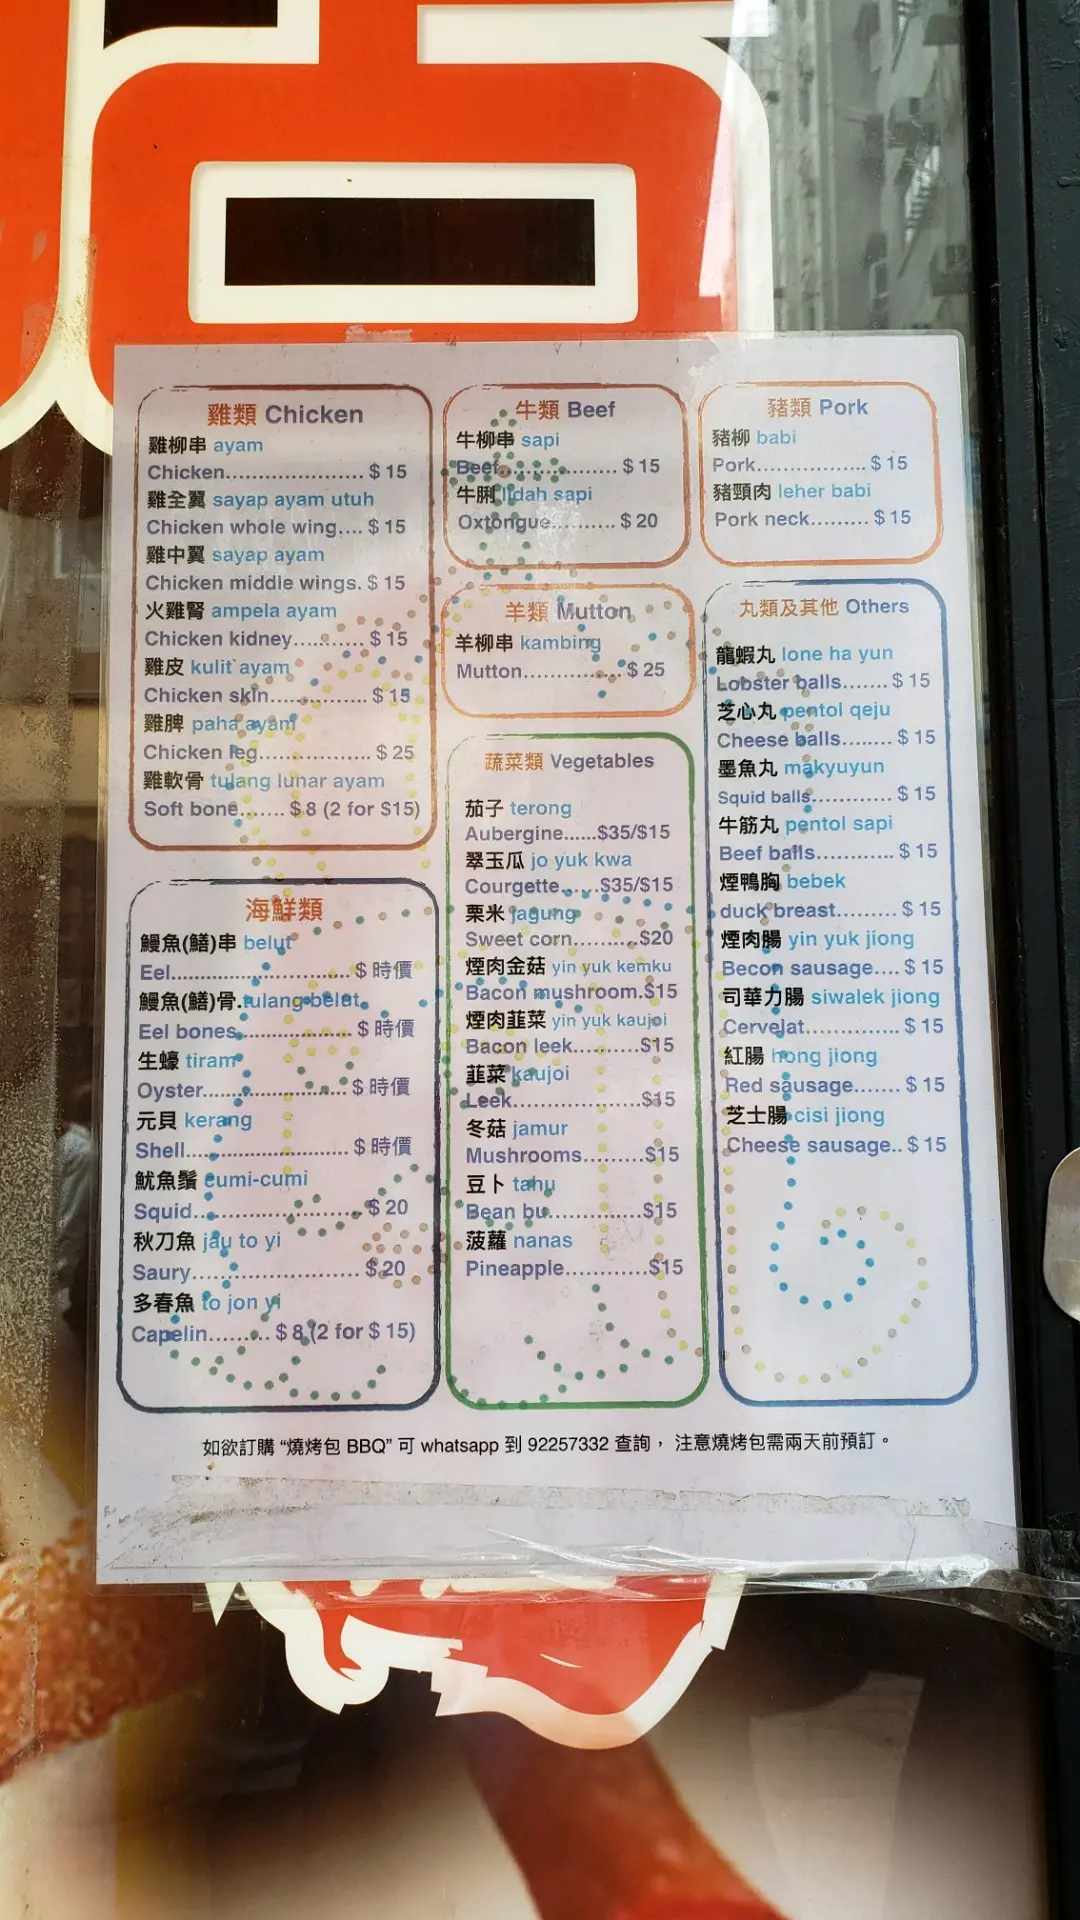 雞類 Chicken
雞柳串 ayam
Chicken........................ $ 15
雞全翼 sayap ayam utuh
Chicken whole wing.... $ 15
雞中翼 sayap ayam
Chicken middle wings. $ 15
火雞腎 ampela ayam
Chicken kidney............ $ 15
雞皮 kulit`ayam
Chicken skin................ $ 15
雞脾 paha ayam
Chicken leg.................. $ 25
雞軟骨 tulang lunar ayam
Soft bone....... $ 8 (2 for $15)
海鮮類
鰻魚(鱔)串 belut
Eel............................... $ 時價
鰻魚(鱔)骨 tulang belut
Eel bones.................... $ 時價
生蠔 tiram
Oyster......................... $ 時價
元貝 kerang
Shell............................ $ 時價
魷魚鬚 cumi-cumi
Squid.............................. $ 20
秋刀魚 jau to yi
Saury............................. $ 20
多春魚 to jon yi
Capelin......... $ 8 (2 for $ 15)
牛類 Beef
牛柳串 sapi
Beef.................... $ 15
牛脷 lidah sapi
Oxtongue........... $ 20
羊類 Mutton
羊柳串 kambing
Mutton.................. $ 25
蔬菜類 Vegetables
茄子 terong
Aubergine......$35/$15
翠玉瓜 jo yuk kwa
Courgette......$35/$15
栗米 jagung
Sweet corn...........$20
煙肉金菇 yin yuk kemku
Bacon mushroom.$15
煙肉韮菜 yin yuk kaujoi
Bacon leek...........$15
韮菜 kaujoi
Leek......................$15
冬菇 jamur
Mushrooms..........$15
豆卜 tahu
Bean bu................$15
菠蘿 nanas
Pineapple.............$15
豬類 Pork
豬柳 babi
Pork.................. $ 15
豬頸肉 leher babi
Pork neck......... $ 15
丸類及其他 Others
龍蝦丸 lone ha yun
Lobster balls....... $ 15
芝心丸 pentol qeju
Cheese balls........ $ 15
墨魚丸 makyuyun
Squid balls............ $ 15
牛筋丸 pentol sapi
Beef balls............ $ 15
煙鴨胸 bebek
duck breast......... $ 15
煙肉腸 yin yuk jiong
Becon sausage.... $ 15
司華力腸 siwalek jiong
Cervelat............... $ 15
紅腸 hong jiong
Red sausage....... $ 15
芝士腸 cisi jiong
Cheese sausage.. $ 15
如欲訂購 “燒烤包 BBQ” 可 whatsapp 到 92257332 查詢， 注意燒烤包需兩天前預訂。